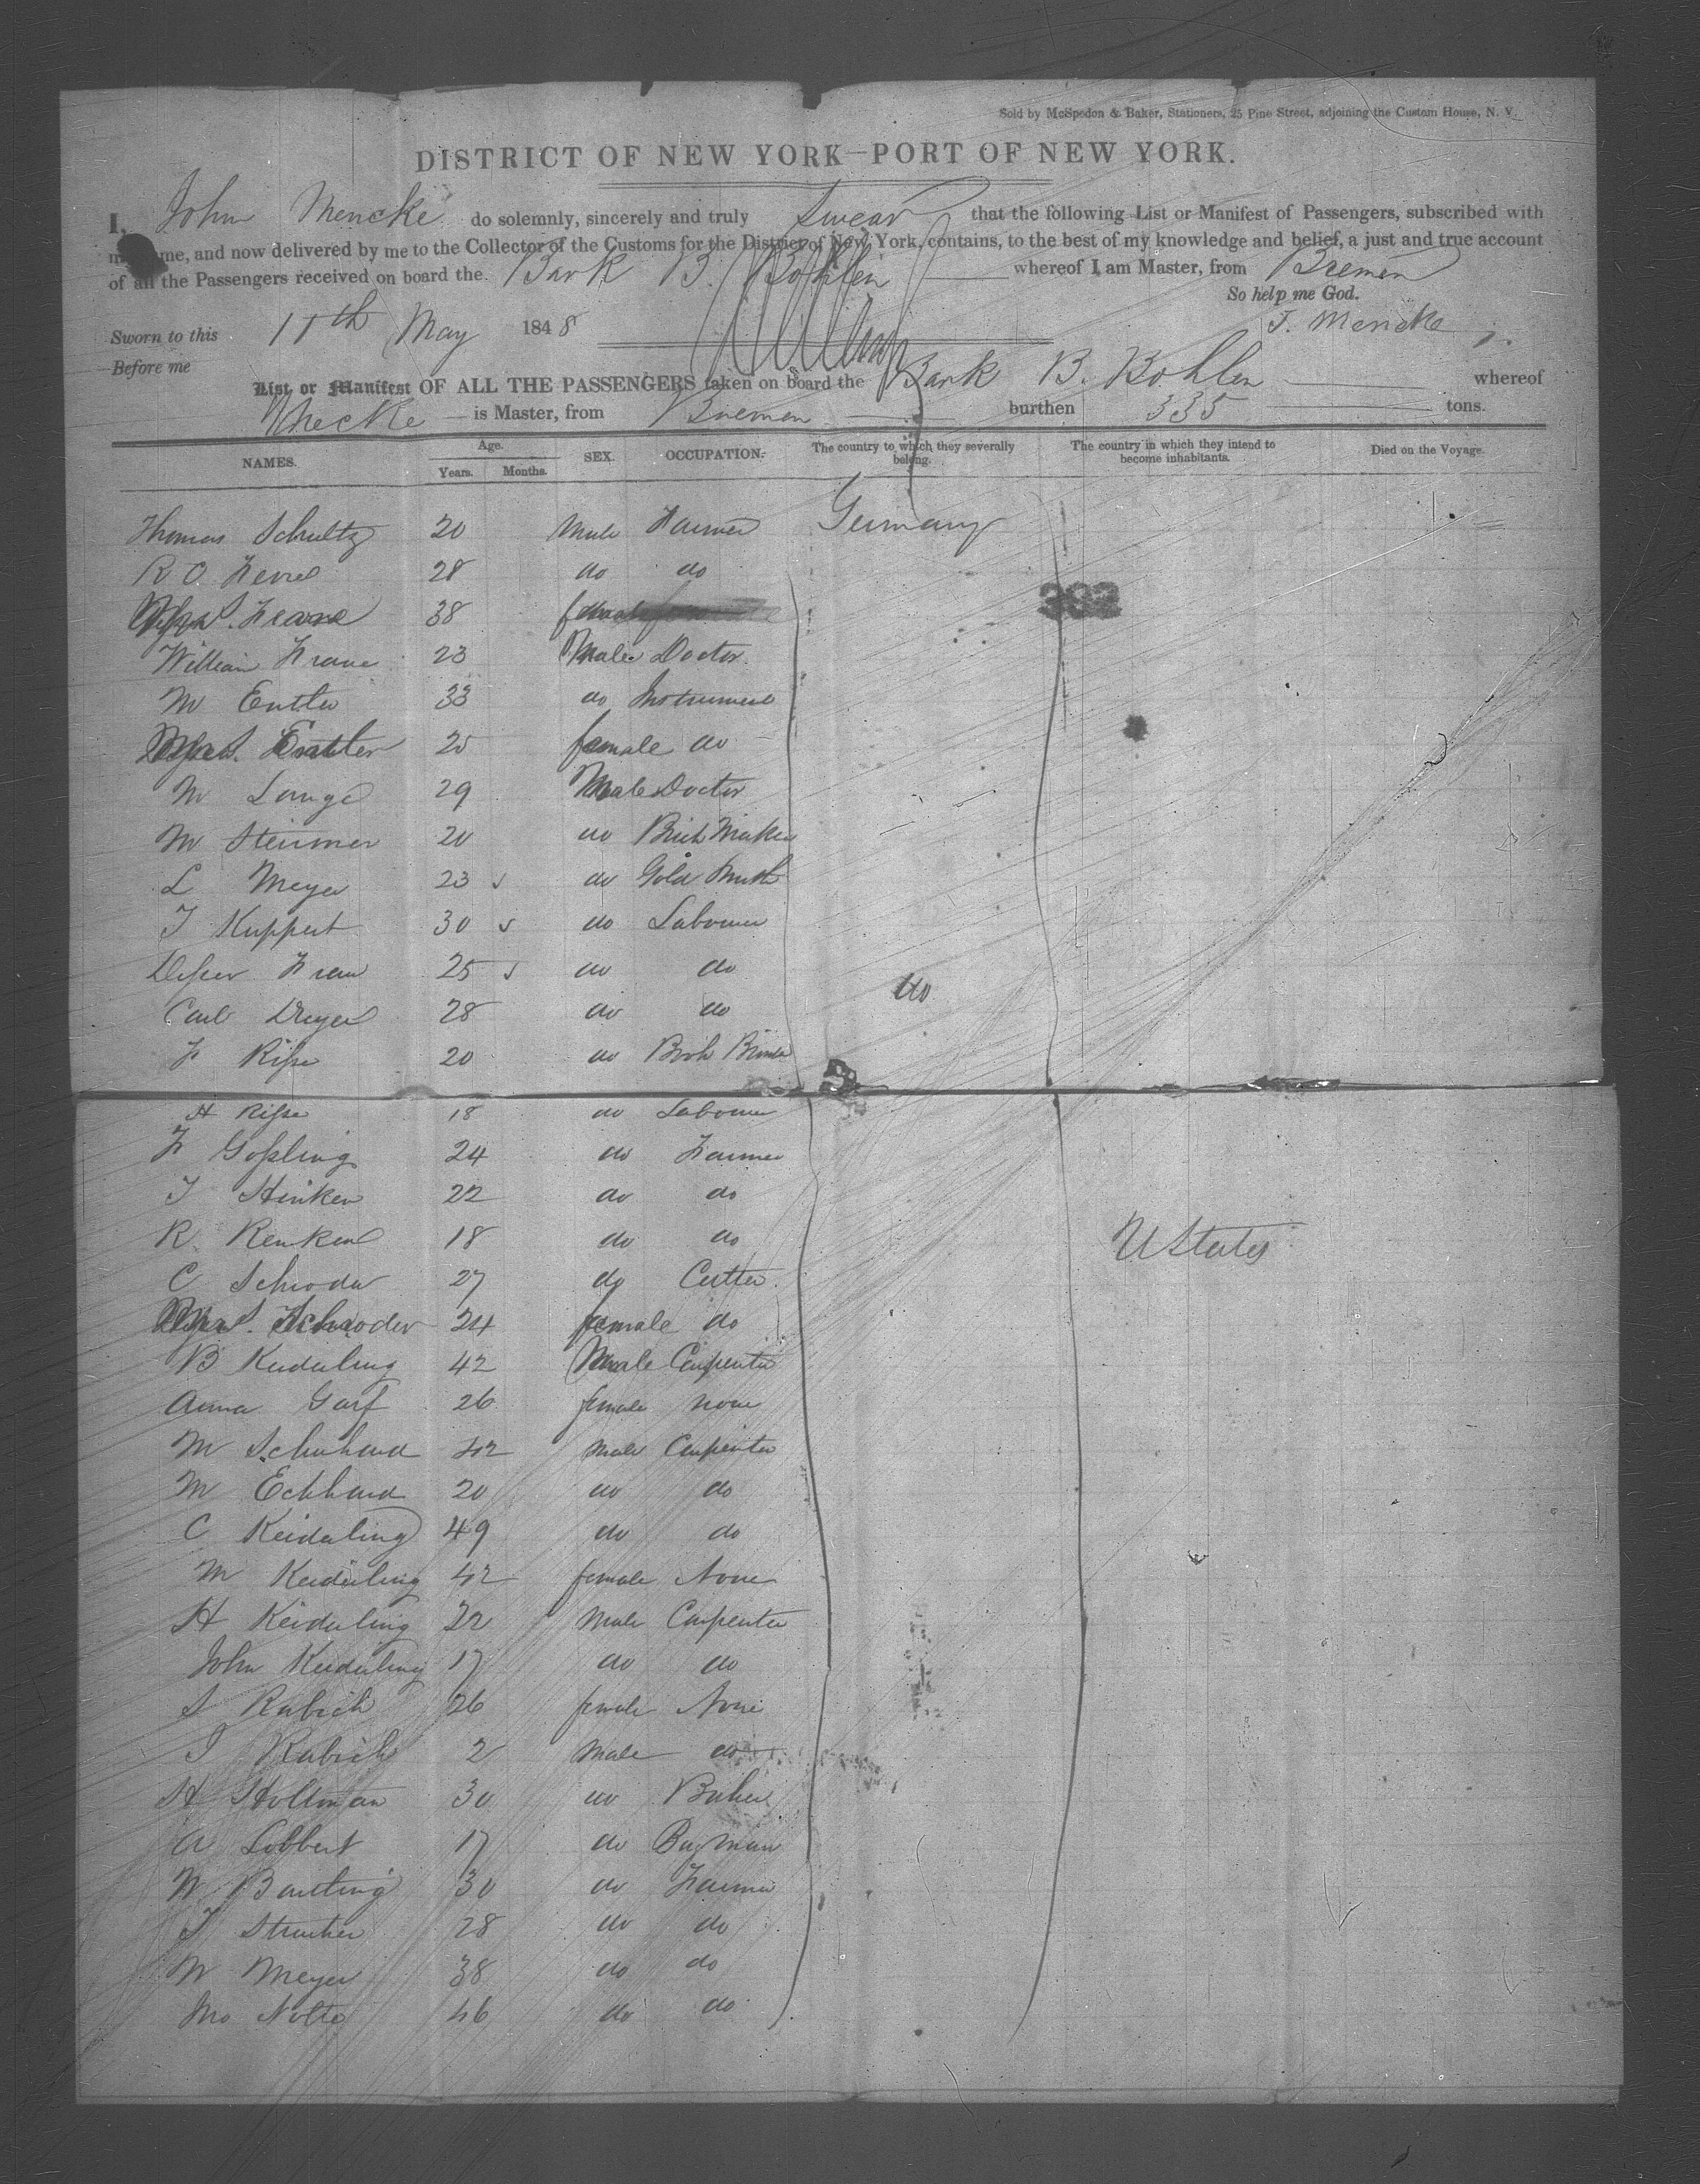 Sold by McSpedon & Baker, Stationers, 25 Pine Street, adjoining the Custom House, N. Y.
DISTRICT OF NEW YORK—PORT OF NEW YORK.
I, John Mencke do solemnly, sincerely and truly Swear that the following List or Manifest of Passengers, subscribed with
me, and now delivered by me to the Collector of the Customs for the District of New York, contains, to the best of my knowledge and belief, a just and true account
of all the Passengers received on board the Bark B. Bohlen whereof I am Master, from Bremen
So help me God.
Sworn to this 11th May 1848 J. Mencke
Before me
List or Manifest OF ALL THE PASSENGERS taken on board the Bark B. Bohlen whereof
Mencke is Master, from Bremen burthen 335 tons.
NAMES. Age. Years. Months. SEX. OCCUPATION. The country to which they severally belong. The country in which they intend to become inhabitants. Died on the Voyage.
Thomas Schultz 20 Male Farmer Germany
R O 28 do do
Mrs. 38 female
332
William 23 Male Doctor
M Entler 33 do Instrument
Mrs. Entler 25 female do
M Lange 29 Male Doctor
M Steinmer 20 do Brick Maker
L Meyer 23 do Gold Smith
J Kuppert 30 do Labourer
25 do do
do
Carl Dreyer 28 do do
F Riße 20 do Book Binder
H Riße 18 do Labourer
F Goßling 24 do Farmer
J Hinken 22 do do
R. Renken 18 do do
UStates
C Schroder 27 do Cutter
Mrs. Schroder 24 female do
B Keiderling 42 Male Carpenter
Anna Garf 26 female none
M Schuhard 42 Male Carpenter
M Eckhard 20 do do
C Keiderling 49 do do
M Keiderling 42 female None
H Keiderling 22 Male Carpenter
John Keiderling 17 do do
S Rabich 26 female None
J Rabich 2 male do
H Holtman 30 do Baker
A Lobbert 17 do
W Banting 30 do Farmer
J 28 do do
W Meyer 38 do do
Nolte 46 do do